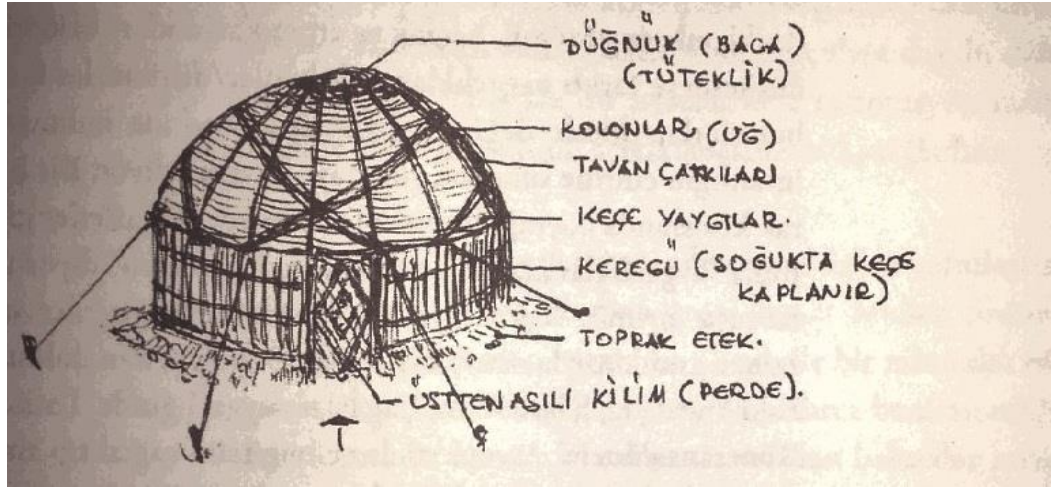 DÜĞNÜK (BACA)
(TÜTEKLİK)
KOLONLAR (UĞ)
TAVAN ÇATKILARI
KEÇE YAYGILAR.
KEREGÜ (SOĞUKTA KEÇE
KAPLANIR)
TOPRAK ETEK.
ÜSTTEN ASILI KİLİM (PERDE).